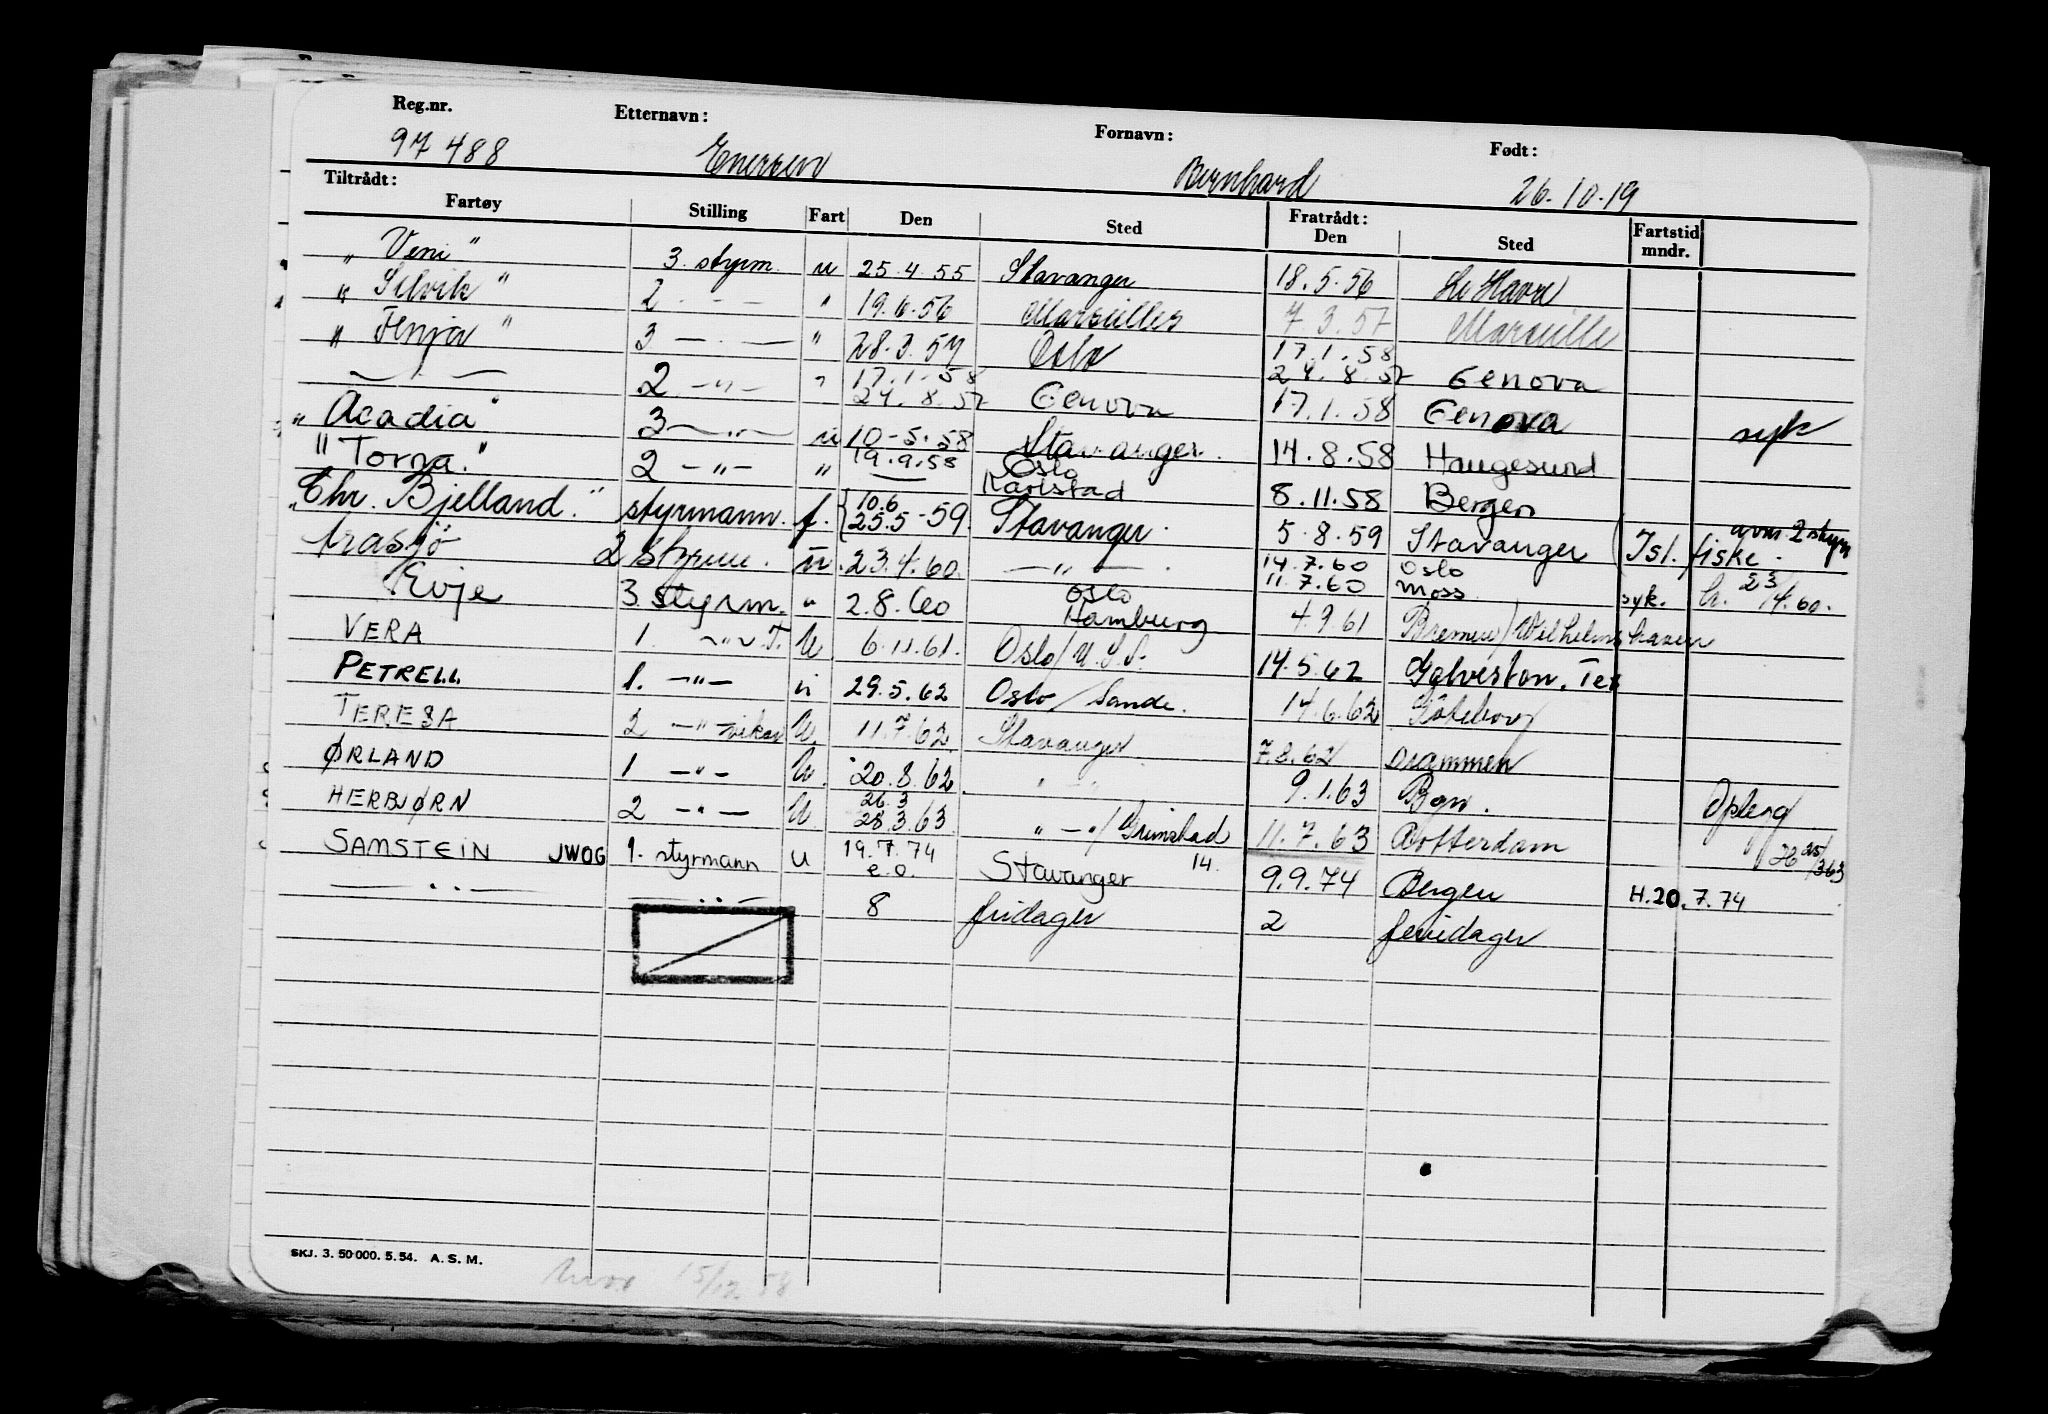 Reg.nr. Etternavn: Fornavn: Født:
97 488 Enersen Bernhard 26.10.19
Tiltrådt: Fratrådt:
Fartøy Stilling Fart Den Sted Den Sted Fartstid mndr.
"Veni" 3. styrm. u 25.4.55 Stavanger 18.5.56 Le Havre
"Selvik" 2 - - - " 19.6.56 Marseilles 7.3.57 Marseille
"Fenja" 3 — . — " 28.3.57 Oslo 17.1.58
24.8.57 Genova
— " — 2 — " — " 17.1.58
24.8.57 Genova 17.1.58 Genova syk
"Acadia" 3 — " — u 10-5.58 Stavanger. 14.8.58 Haugesund
"Torna." 2 — " — " 19.9.58 Oslo
Karlstad 8.11.58 Bergen
"Chr. Bjelland." styrmann. f. { 10.6
25.5 -59. Stavanger. 5.8.59 Stavanger ( Isl. fiske. avm. 2 styrm
trasjö 2 styrm. u. 23.4.60. — " — . 14.7.60 Oslo
11.7.60 Moss syk. h. 23/4.60.
Evje 3. styrm. " 2.8.60 Oslo
Hamburg 4.9.61 Bremen / Wilhelmshaven
VERA 1. — " — T. U 6.11.61. Oslo / U.S.A. 14.5.62 Galveston. Tex
PETRELL 1. — " — u 29.5.62 Oslo / Sande. 14.6.62 Göteborg
TERESA 2 — " — vikar U. 11.7.62. Stavanger 7.8.62 Drammen
ØRLAND 1 — " — U. 20.8.62. " — " 9.1.63 Bgn. Oplegg
HERBJØRN 2 — " — U. 26.3
28.3.63. " — " / Grimstad 11.7.63 Rotterdam H 25/3 63
SAMSTEIN JWOG 1. styrmann U 19.7.74
e.o. Stavanger 14. 9.9.74 Bergen H.20.7.74
— " — — " — 8 fridager 2 feriedager
SKJ. 3. 50 000. 5. 54. A. S. M.
15/12 58